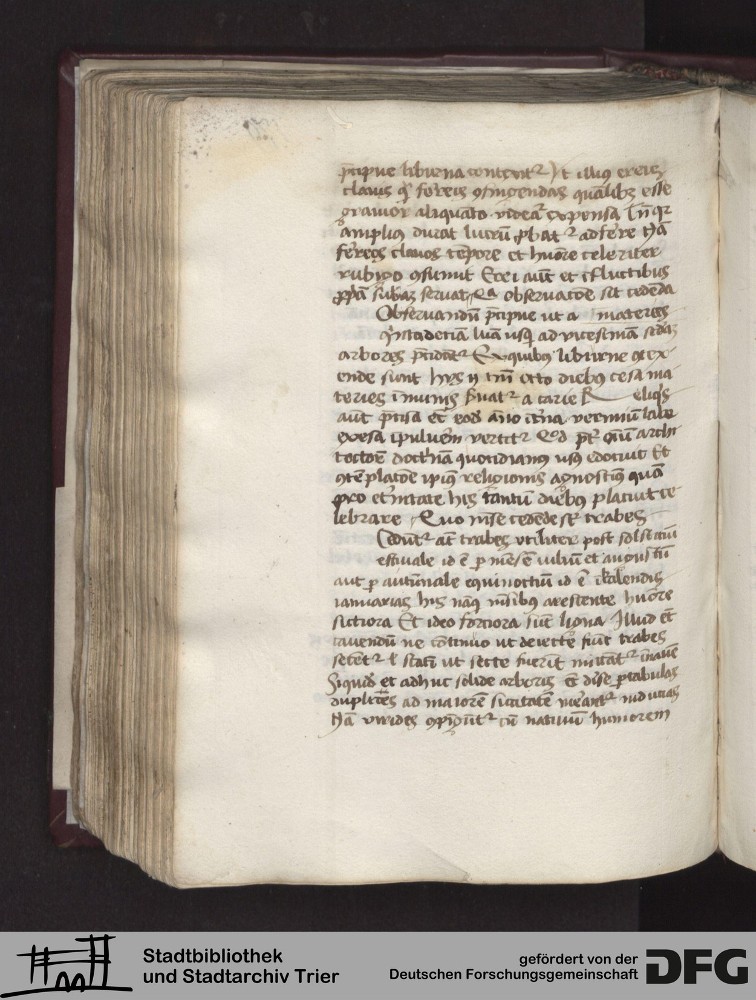 p̄cipue liburna contexit᷑ Et illiq ereis
clauis q̄ ferreis ꝯfingendas quālibꝫ esse
grauior aliquāto videat᷑ expensa Tn̄ qꝛ
amplius durat lucrū ꝓbat᷑ adferre Nā
ferreos clauos tēpore et huōre celeriter
rubigo ꝯsumit Erei aūt et i fluctibus
ꝓpⁱā sūbāȝ seruāt Qͣ obseruacōe sit cedēda
Obseruandū p̄cipue ut a materies
q̄ntadecīa luā usqꝫ ad vicesimā scdaȝ
arbores p̄cidāt᷑ Ex quibus liburne ꝯtex-
ende sunt hijs n̄ tm̄ octo diebꝯ cesa ma-
teries īmunis s̄uat᷑ a carie R eliqⁱs
aūt p̄cisa et eodē āno īt̄na vermiū labe
exesa ī puluerē vertit᷑ Qod pt᷑ quiā archi-
tectorē doctⁱnā quotidianꝯ usꝯ edocuit Et
ꝯtēplatōe ipiꝯ religionis agnoscimꝯ quā
pro et̄nitate his tantum diebꝯ placuit ce-
lebrare Quo mēse cedēde st᷑ trabes
Cedūt᷑ aūt trabes vtiliter post solsticiū
estiuale id ē p mēsē iuliū et augustū
aut p autūnale equinoctiū id ē ī kalendis
ianuarias his nāqꝫ mēsibꝯ arescente huōre
sictiora Et ideo forciora sūt ligna Illud et̄
cauendū ne cōtinuo ut deiecte fūt trabes
secēt᷑ l̄ statī ut secte fuerīt mittāt᷑ ī nauē
Siquidē et adhuc solide arboris Et dīse p tabulas
duplices ad maiorē siccitatē meant᷑ inducias
Nā virides ꝯpīgūt᷑ cū natiuū humorem
Stadtbibliothek
und Stadtarchiv Trier
gefördert von der
Deutschen Forschungsgemeinschaft
DFG